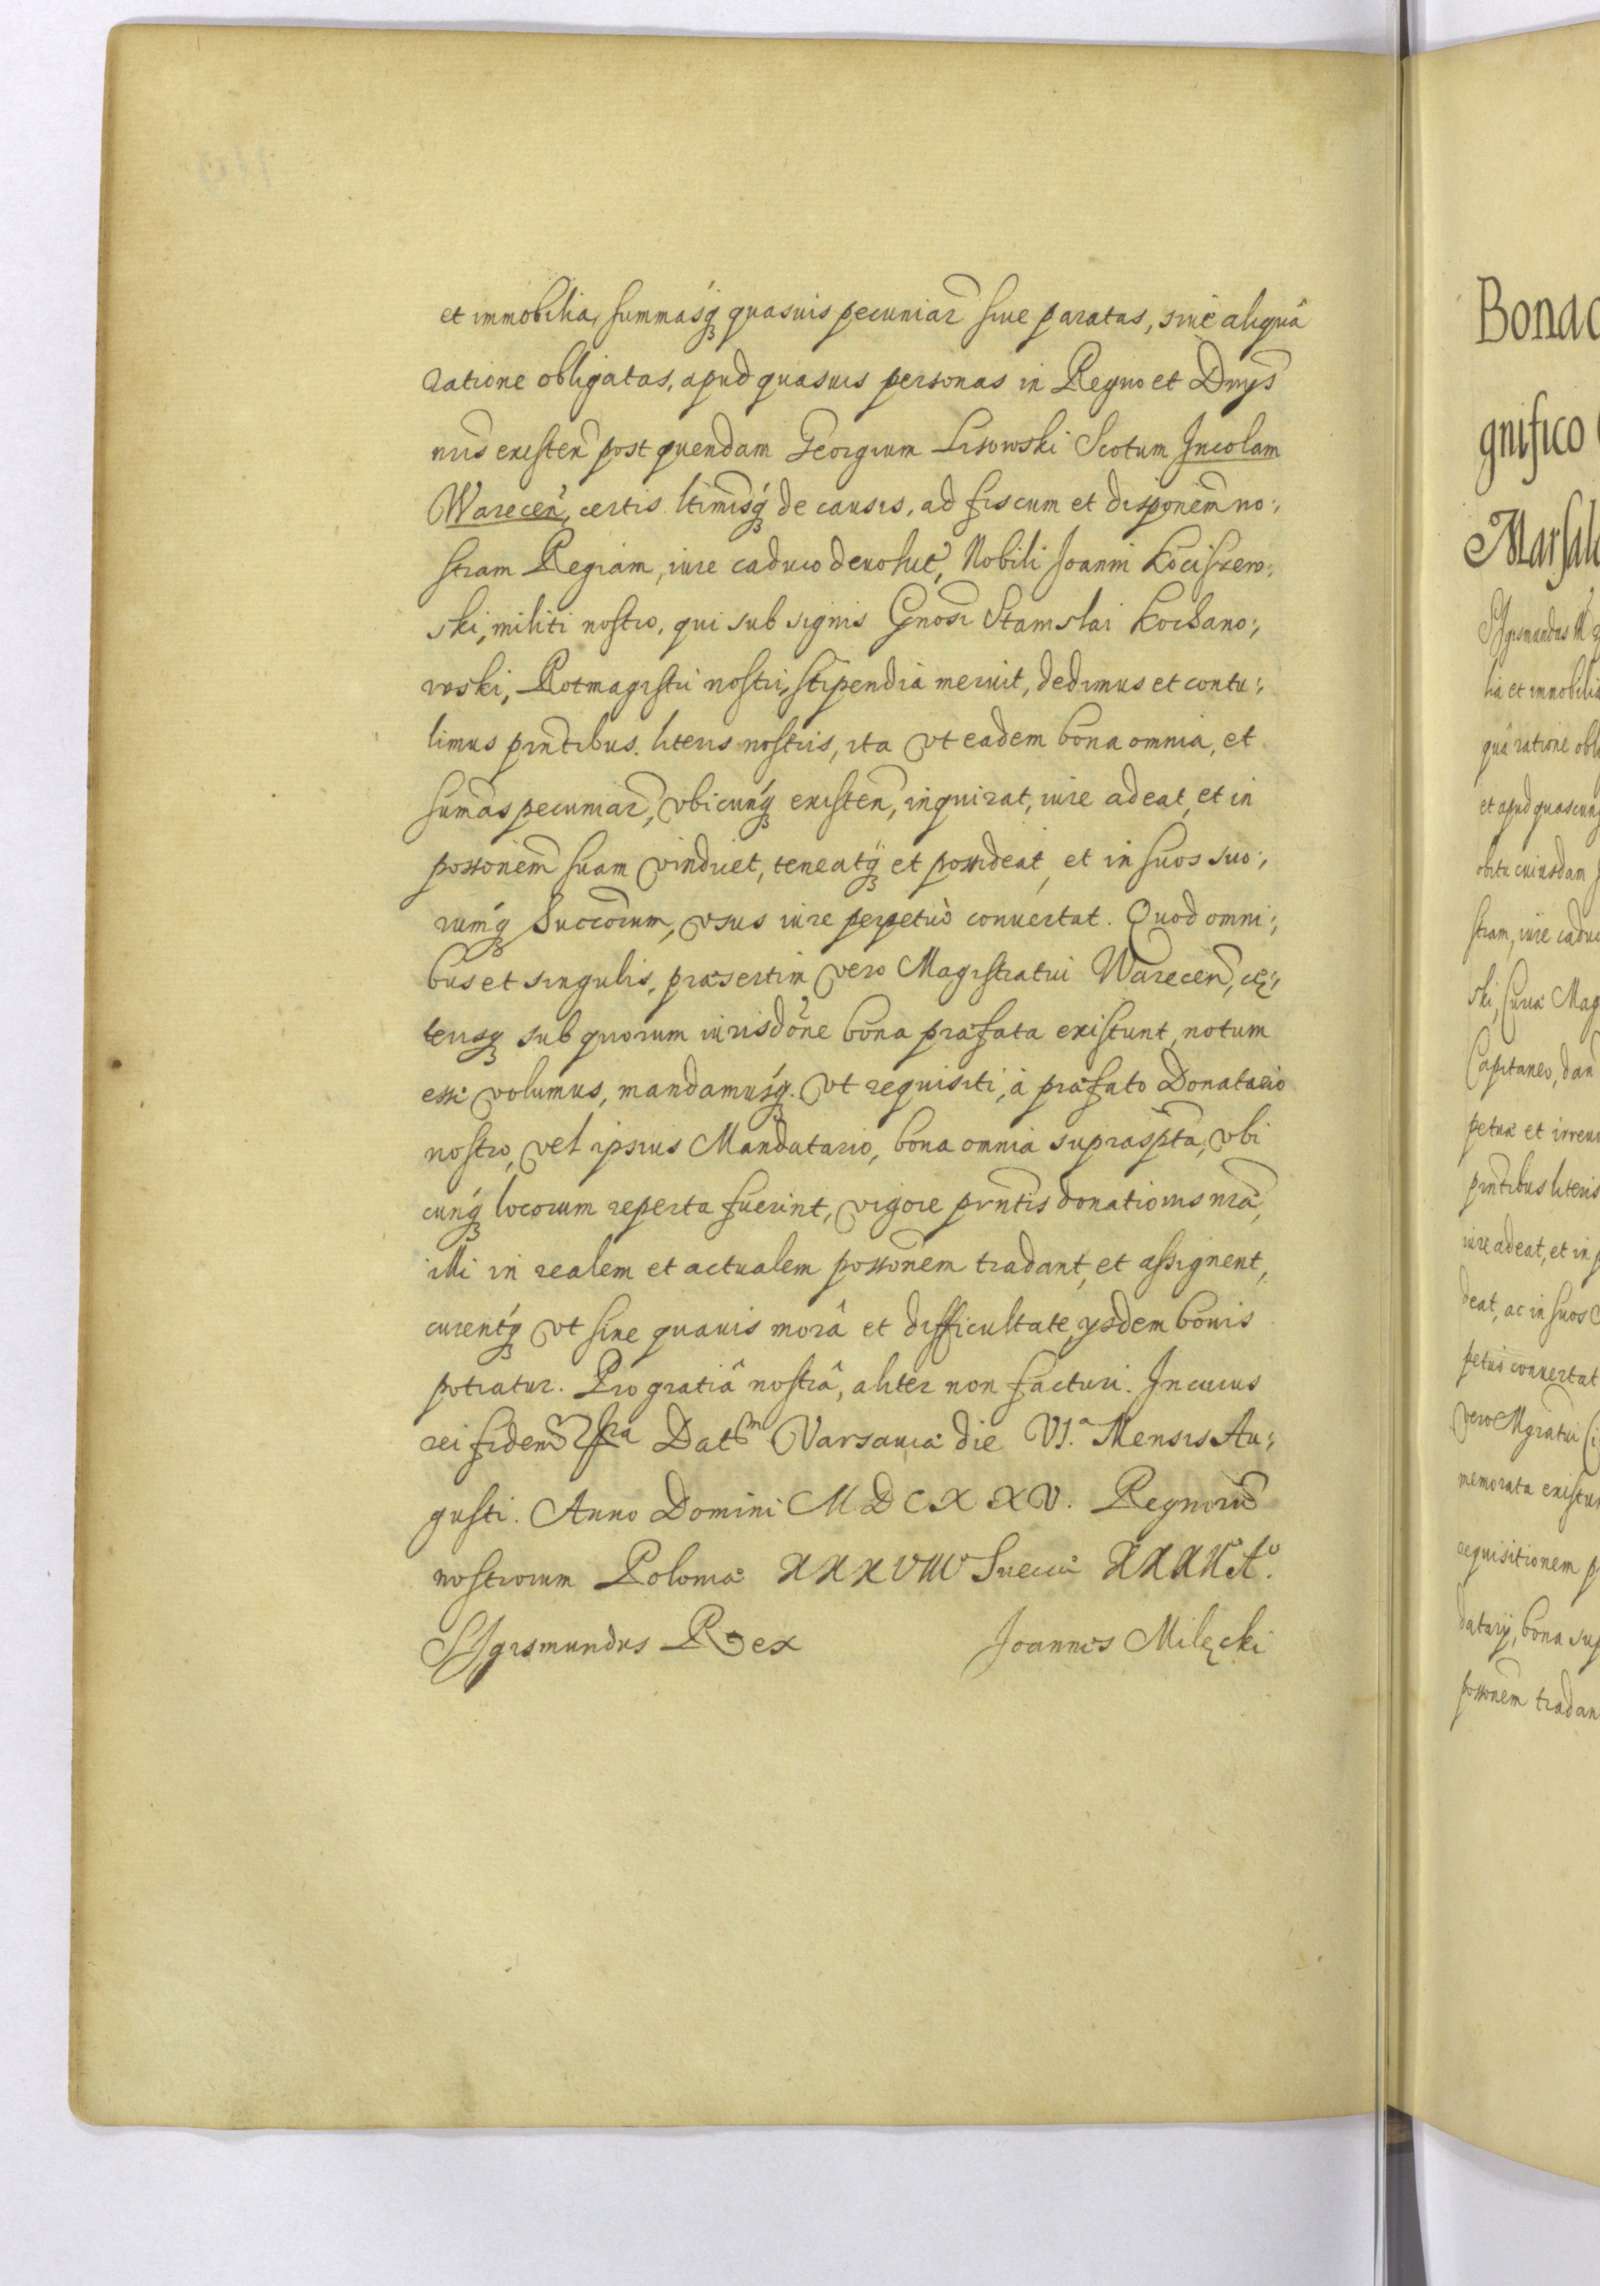 et immobilia, summasq́ʒ quasuis pecuniar̃ siue paratas, siue aliquâ
ratione obligatas, apud quasuis personas in Regno et Dnĩjs
nris̃ existen̄ post quendam Georgium Lisowski Scotum Incolam
Warecen̄, certis ltimisq́ʒ de causis, ad fiscum et dispoñem no:,
stram Regiam, iure caduco deuolut̃, Nobili Joanni Kociszew:,
ski, militi nostro, qui sub signis Gnosi Stanislai Kochano:,
wski, Rotmagistri nostri, stipendia meruit, dedimus et contu:,
limus prñtibus. literis nostris, ita vt eadem bona omnia, et
sum̃as pecuniar̃, vbicunq́ʒ existen̄, inquirat, iure adeat, et in
possoñem suam vindicet, teneatq́ʒ et possideat, et in suos suo:,
rumq́ʒ Succorum̃, vsus iure perpetuò conuertat. Quod omni:,
bus et singulis, præsertim vero Magistratui Warecen̄, cę:,
terisqʒ sub quorum iurisdõne bona præfata existunt, notum
esse volumus, mandamusq́ʒ. vt requisiti, à præfato Donatario
nostro, vel ipsius Mandatario, bona omnia suprasp̃ta, vbi
cunq́ʒ locorum reperta fuerint, vigore prñtis donationis nrã,
illi in realem et actualem possoñem tradant, et assignent,
curentq́ʒ vt sine quauis morâ et difficultate, ysdem bonis
potiatur. Pro gratiâ nostrâ, aliter non facturi. In cuius
rei fidem̃ Datm̃ Varsauiæ die VI.ª Mensis Au:,
gusti. Anno Domini MDCXXV. Regnorũ
nostrorum Poloniæ XXXVIIIº Sueciæ
Sigismundus Rex Joannes Milęcki
Bonac
gnifico
Marsal
Sigismundus
lia et immobilia
quâ ratione obl
et apud quascunq
obitu cuiusdam
stram, iure caduc
ski, Curiæ Mag
Capitaneo, dan
petuâ et irreu
prñtibus literis
iure adeat, et in p
deat, ac in suos
petuò conuertat
vero Mgratui
memorata existun
requisitionem p
datarij, bona sup
possoñem tradan